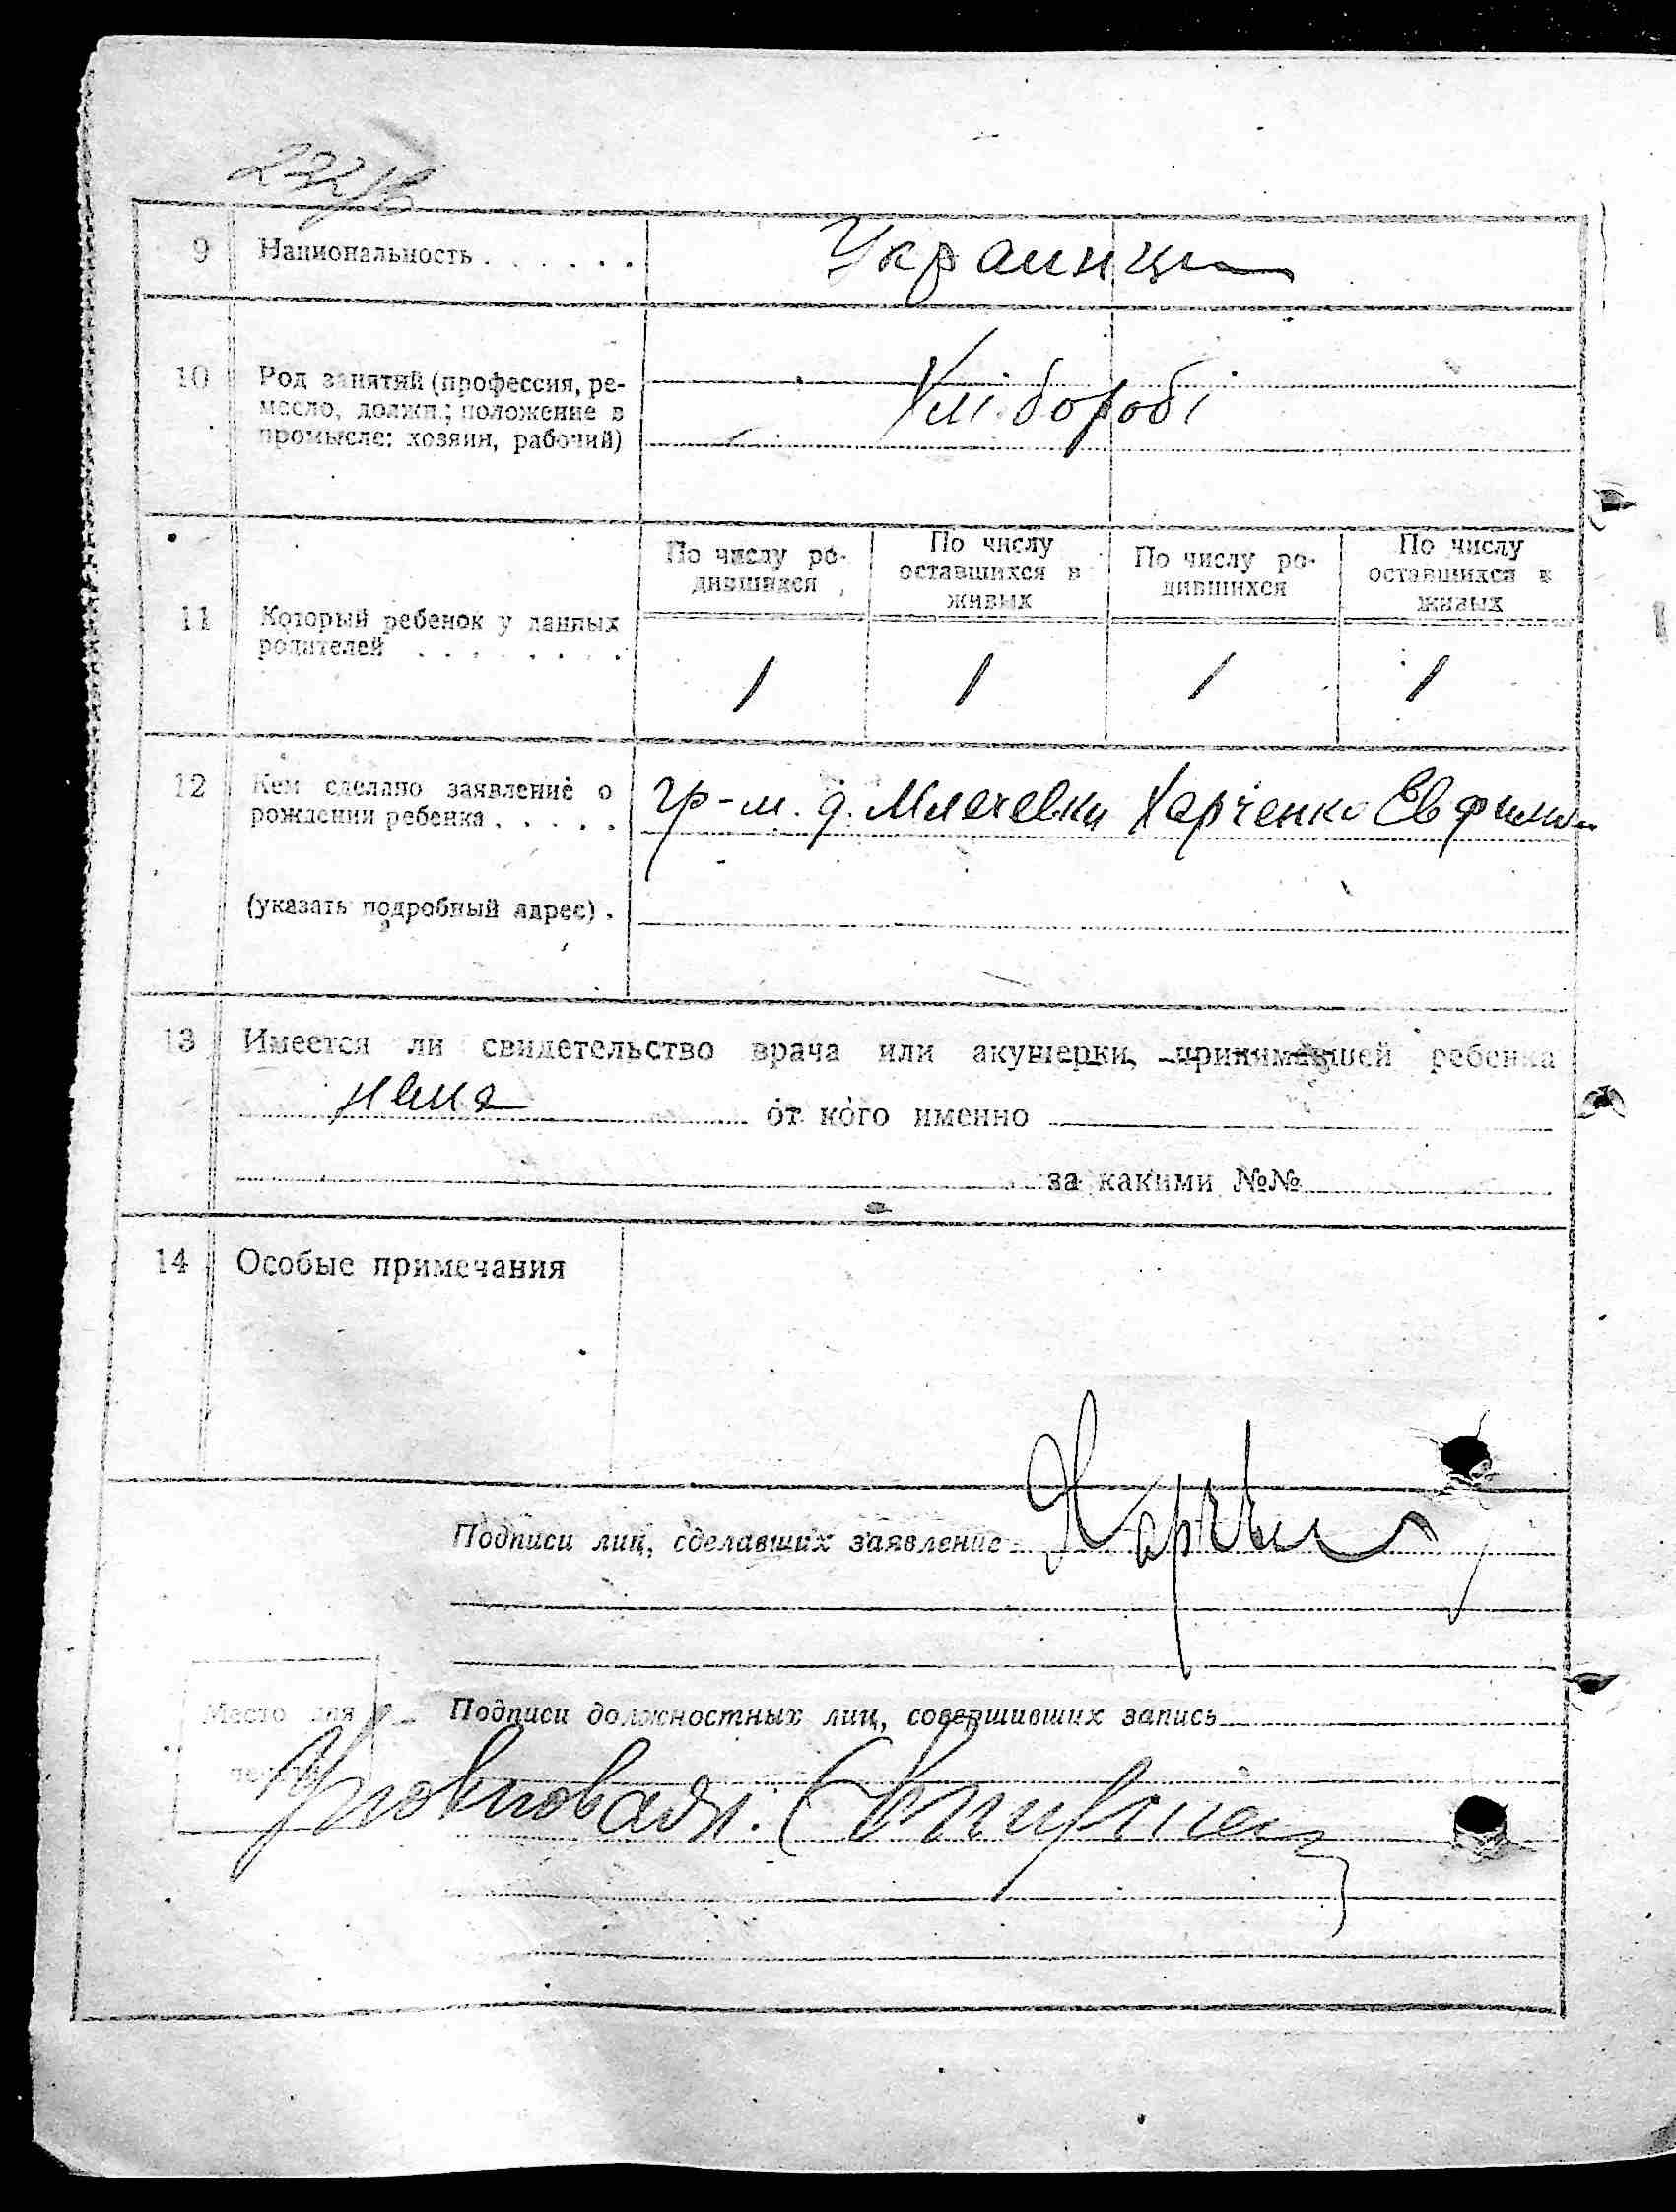 9 Национальность . . . . . . Украинци
10 Род занятий (профессия, ре-
месло, должн.; положение в
промысле: хозяин, рабочий)
Хліборобі
По числу ро-
дившихся
По числу
оставшихся в
живых
По числу ро-
дившихся
По числу
оставшихся в
живых
11 Который ребенок у данных
родителей . . . . . . . .
1 1 1 1
12 Кем сделано заявление о
рождении ребенка . . . . .
гр-м. д. Харченко Евфимом
(указать подробный адрес) .
13 Имеется ли свидетельство врача или акушерки, принимавшей ребенка
нема от кого именно
за какими №№
14 Особые примечания
Подписи лиц, сделавших заявление
Место для
печати
Подписи должностных лиц, совершивших запись